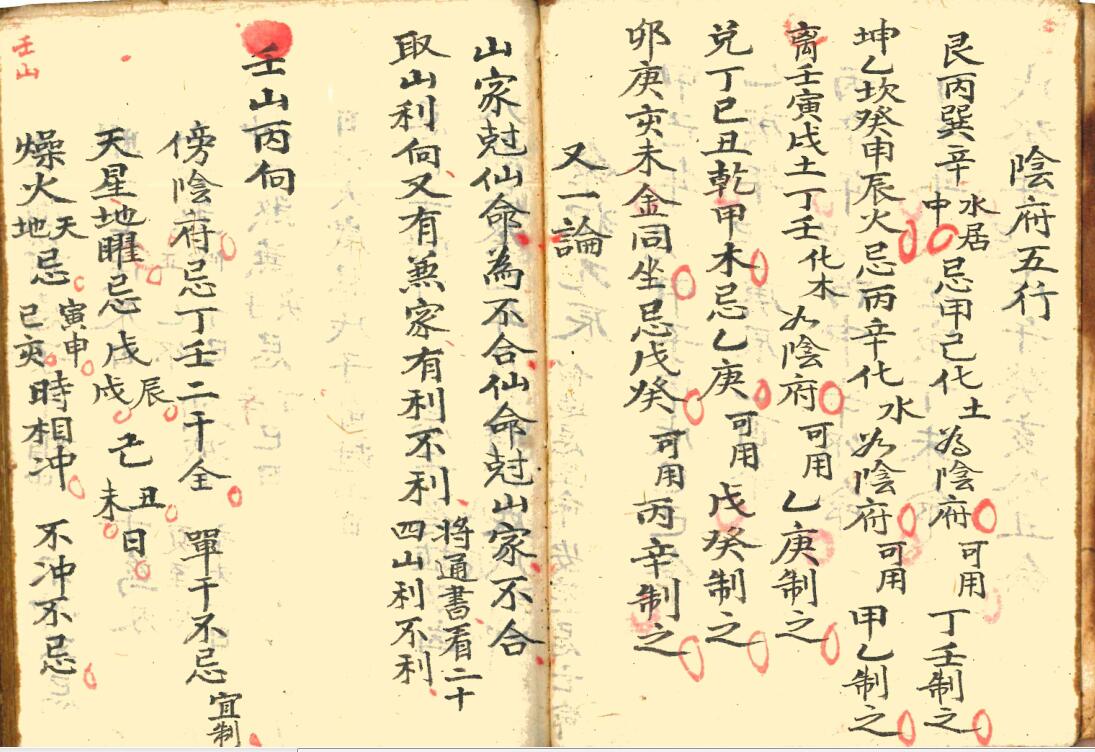 陰府五行
艮丙巽辛水居中忌甲己化土為陰府可用丁壬制之
坤乙坎癸申辰火忌丙辛化水必陰府可用甲乙制之
离壬寅戌土丁壬化木必陰府可用乙庚制之
兌丁巳丑乾甲木忌乙庚可用戊癸制之
卯庚亥未金同坐忌戊癸可用丙辛制之
又一論
山家尅仙命為不合仙命尅山家不合
取山利向又有兼家有利不利將通書看二十四山利不利
壬山丙向
傍陰府忌丁壬二干全單干不忌宜制
天星地曜忌戊辰戌己丑未日
燥火天地忌寅申巳亥時相冲不冲不忌
壬山